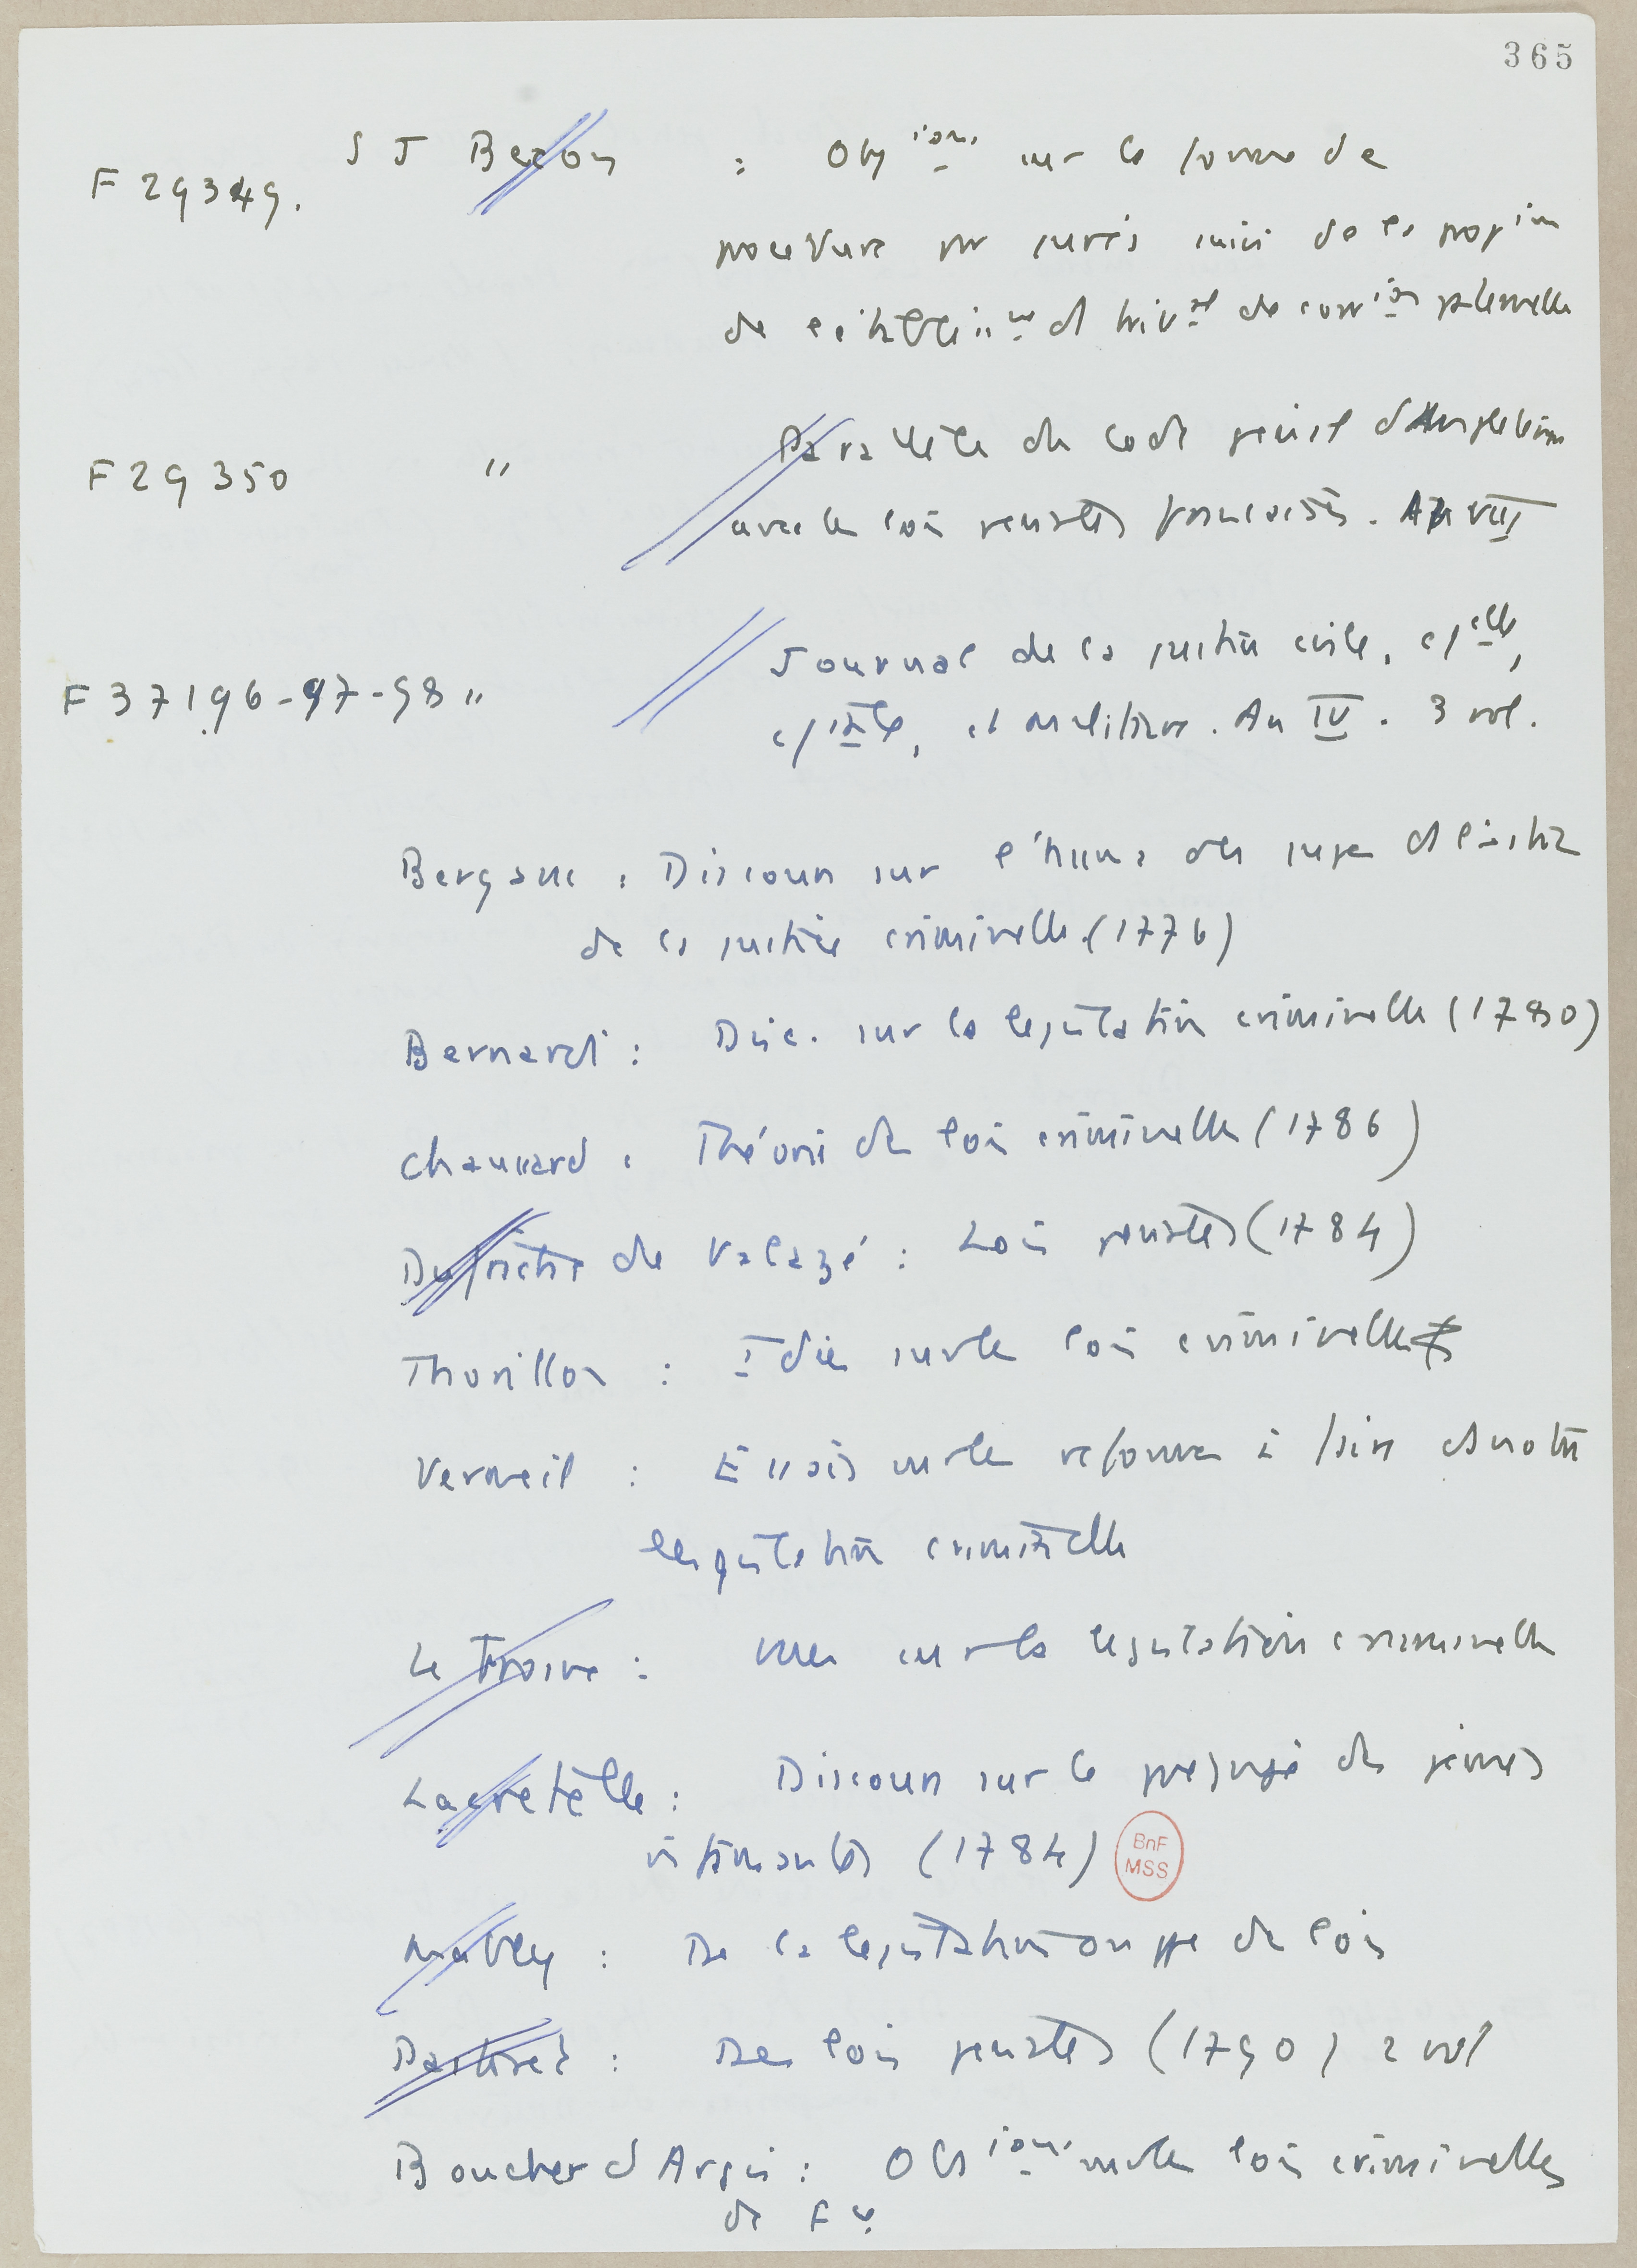 365
F 29349. S J Bexon : Obs ions sur la forme de
procédure par jurés suivi de la propion
de l'établissnt d' tribal de corrion paternelle
F 29 350 " Parallèle du code pénal d'Angleterre
avec les lois pénales françaises. An VII
F 37196-97-98 " Journal de la justice civile, cielle,
et militaire. An IV. 3 vol.
Bergasse : Discours sur l'humé des juges ds l'adm
de la justice criminelle (1776)
Bernardi : Disc. sur la législation criminelle (1780)
Chaussard : Théorie des lois criminelles (1786)
Dufriche de Valazé : Lois pénales (1784)
Thorillon : Idées sur les lois criminelles
Vermeil : Essais sur les réformes à faire ds notre
législation criminelle
Le Trosne : Vues sur la législation criminelle
Lacretelle : Discours sur le préjugé des peines
infamantes (1784)
BnF
MSS
Mably : De la législation ou ppe des lois
Pastoret : Des lois pénales (1790) 2 vol
Boucher d'Argis : Obs ions sur les lois criminelles
de Fce.